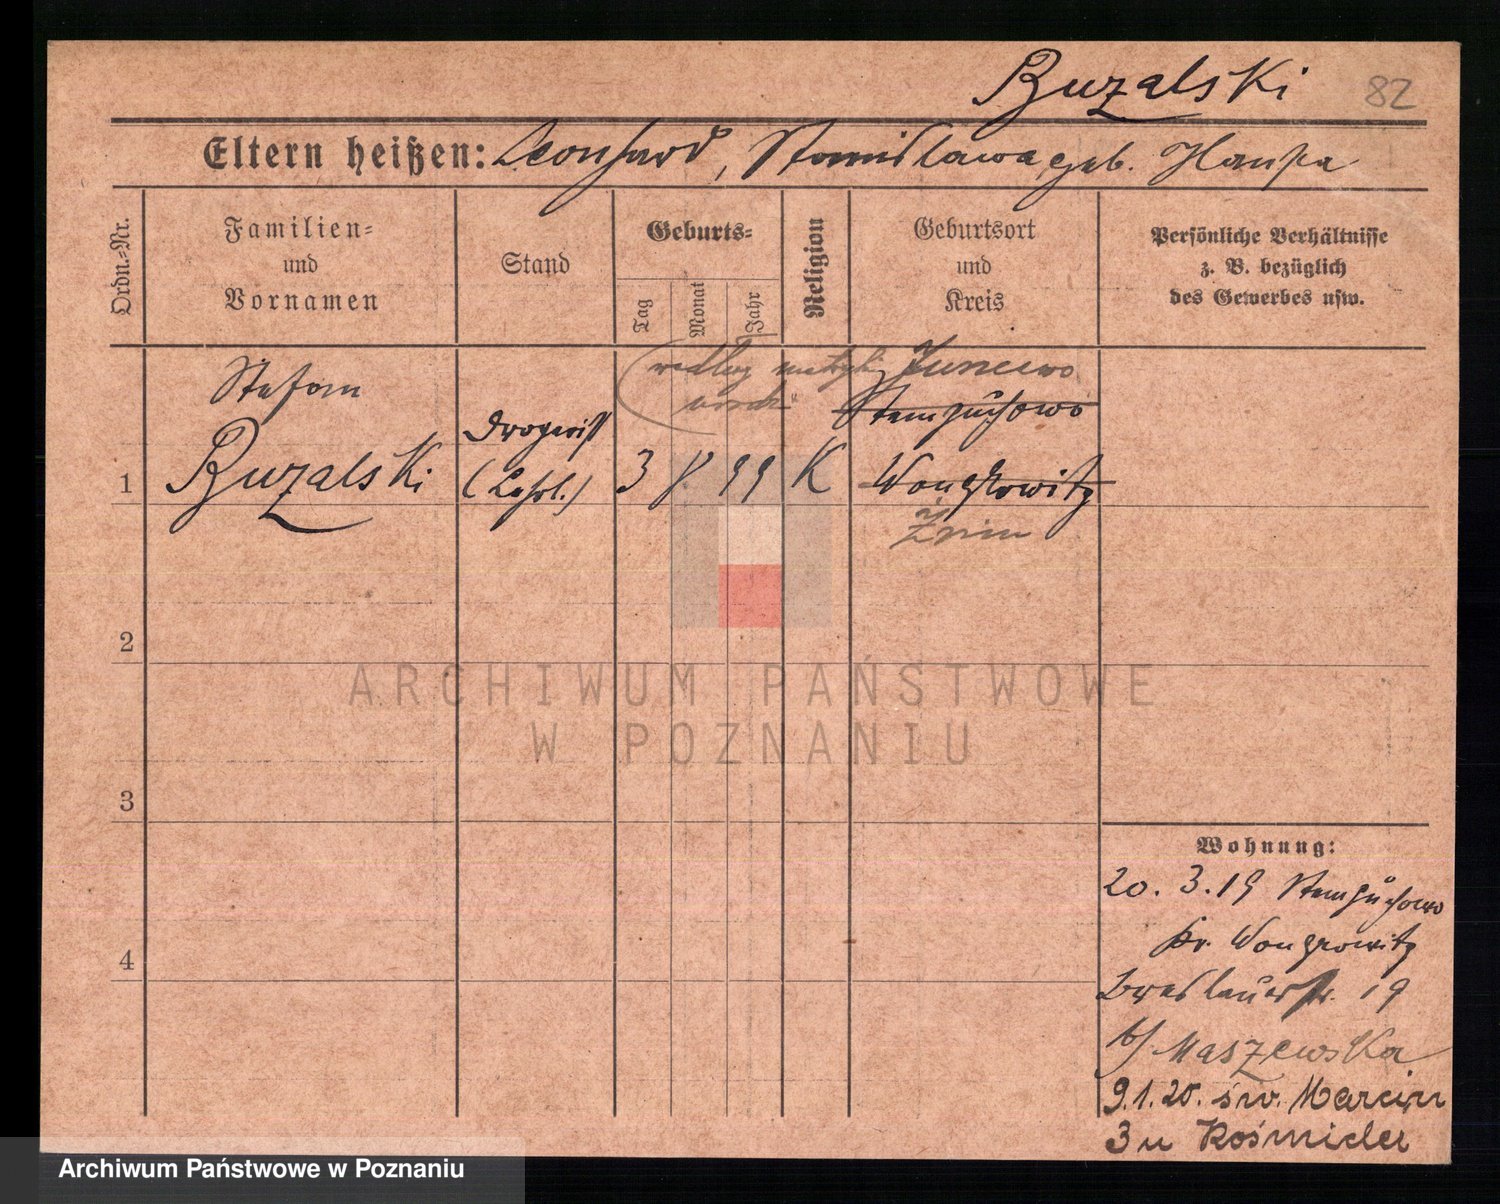 Buzalski 82
Eltern heißen: Leonhard, Stanislawa geb. Hanska
Ordn.-Nr.
Familien-
und
Vornamen
Stand
Geburts-
Tag
Monat
Jahr
Religion
Geburtsort
und
Kreis
Persönliche Verhältnisse
z. B. bezüglich
des Gewerbes usw.
(według metryki Juncewo
urodz"
Stempuchowo
Stefan
Drogerist
1 Buzalski (Lehrl.) 3 8 99 K Wongrowitz
Żnin
2
3
4
ARCHIWUM PAŃSTWOWE
W POZNANIU
Wohnung:
20. 3. 19 Stempuchowo
Kr. Wongrowitz
Breslauerstr. 19
b/ Maszewska
9.1.20. św. Marcin
3 u Kośmider
Archiwum Państwowe w Poznaniu